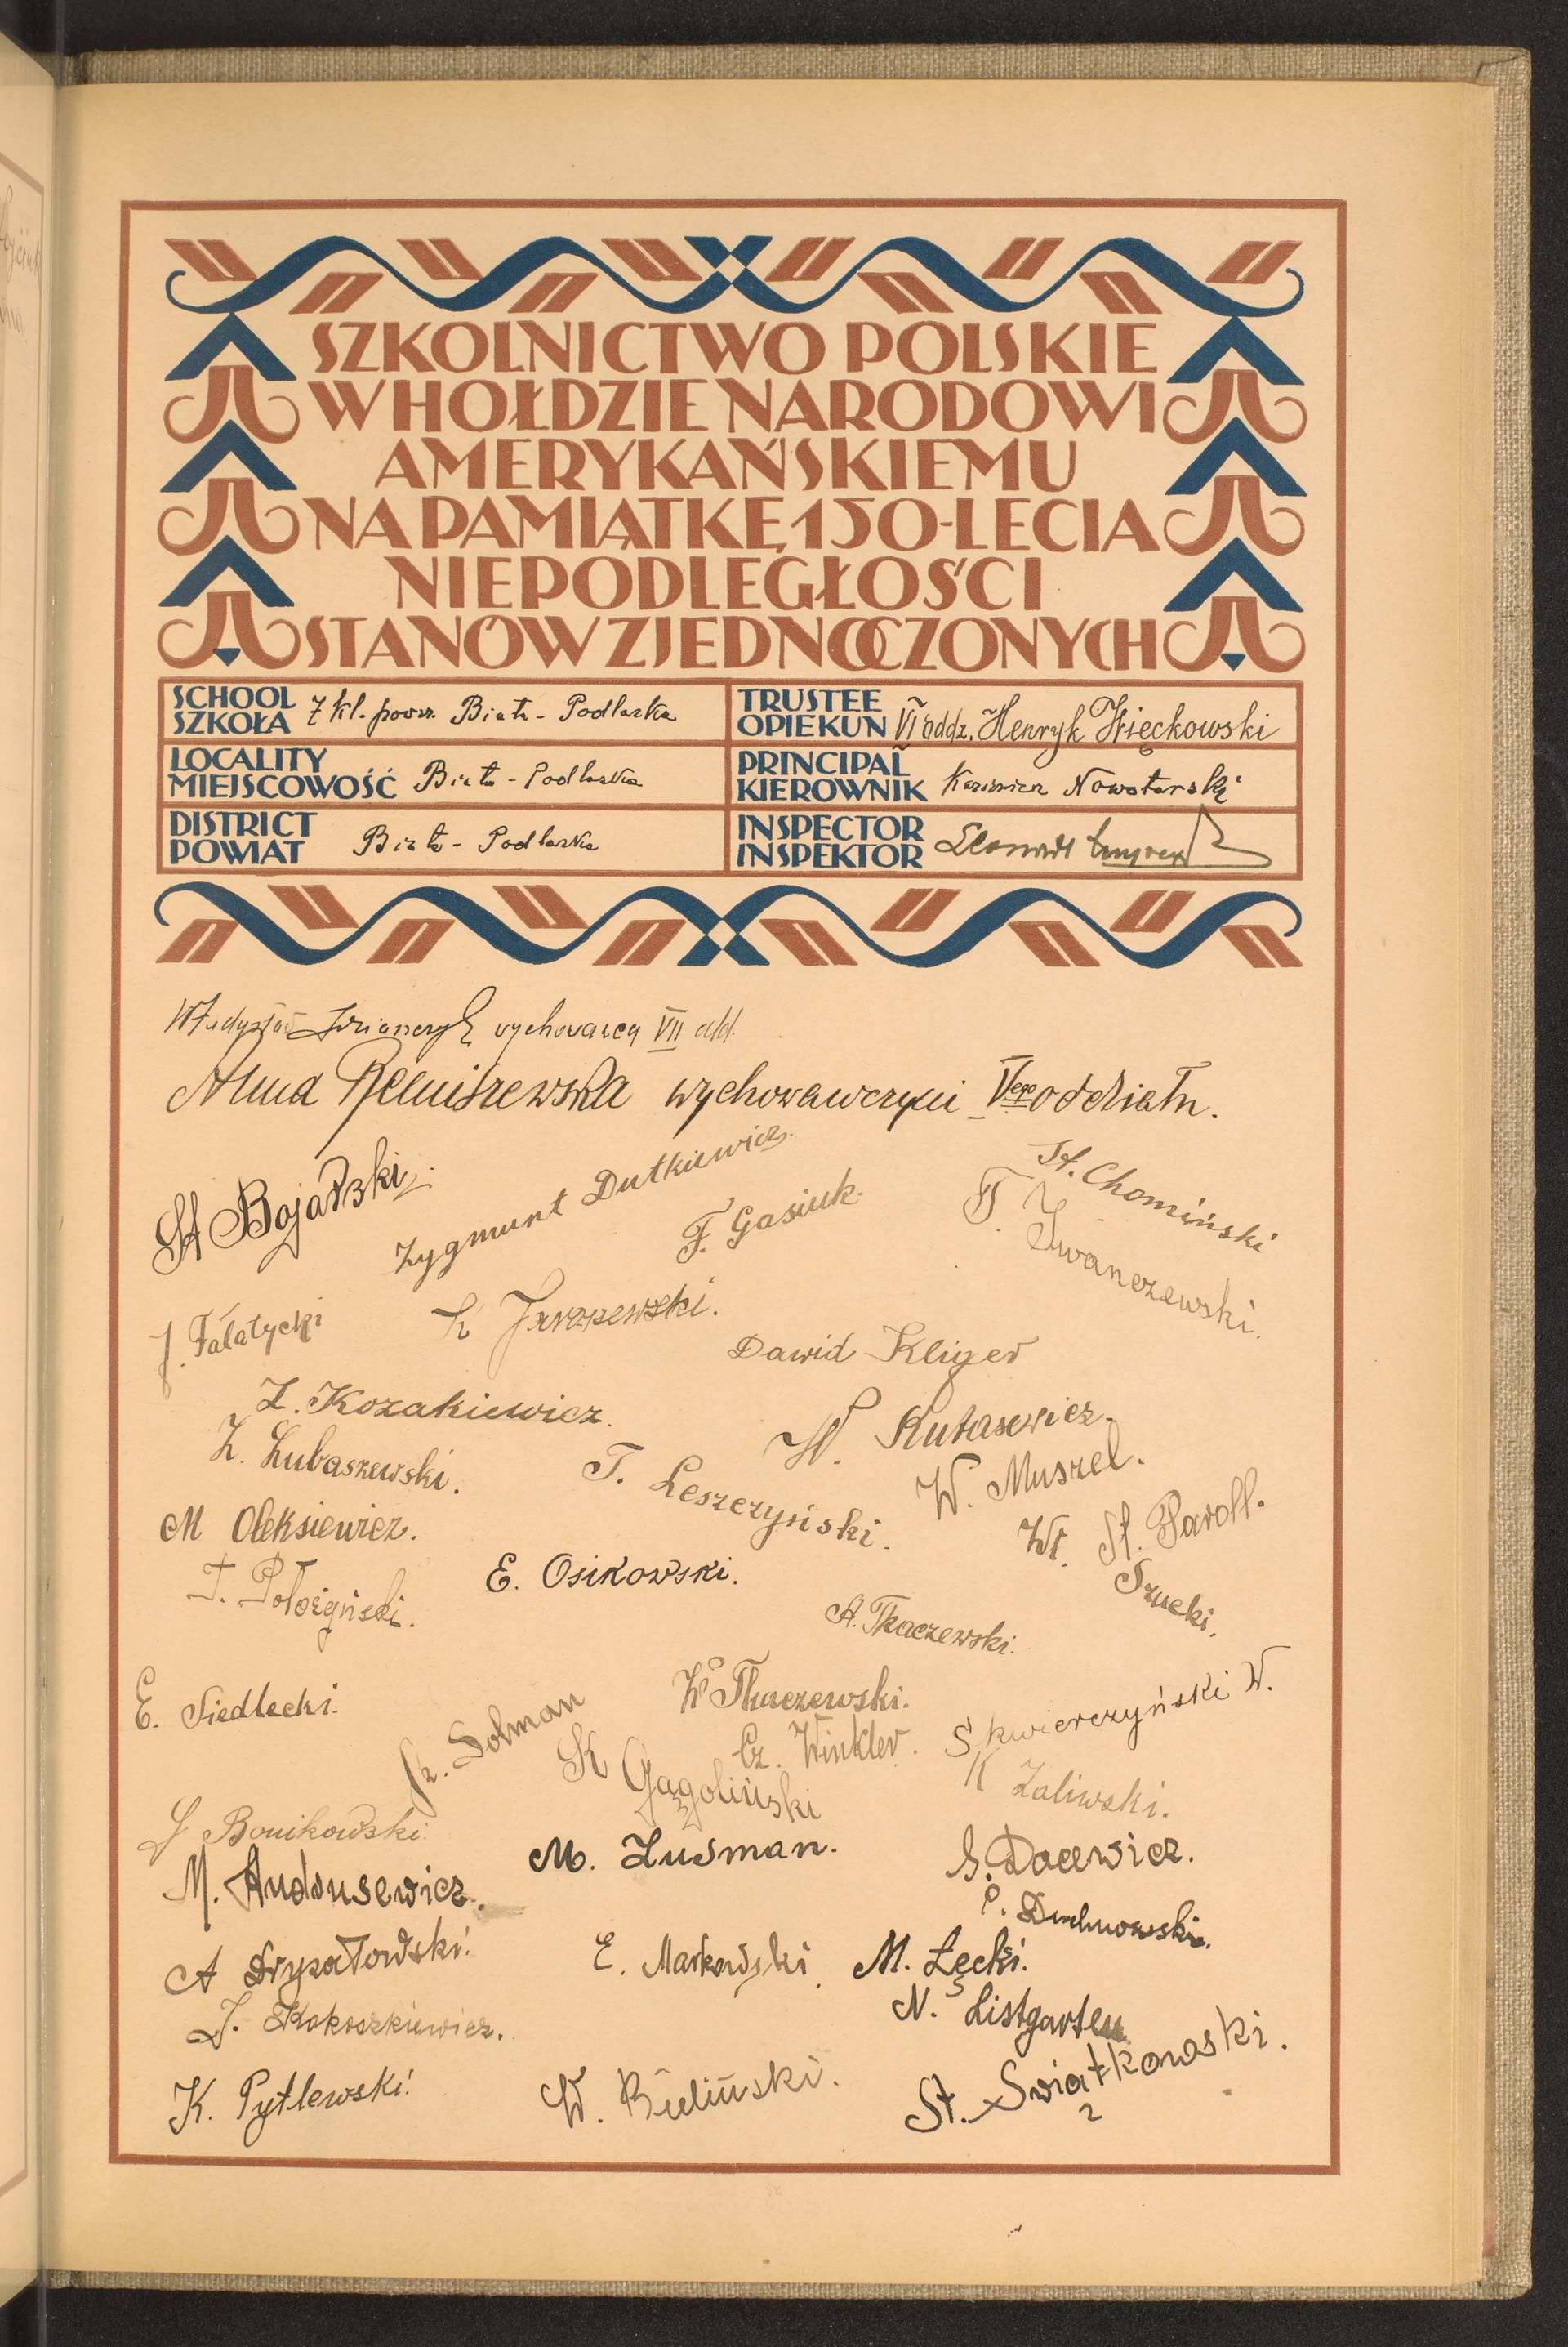 SZKOLNICTWO POLSKIE
W HOŁDZIE NARODOWI
AMERYKAŃSKIEMU
NA PAMIĄTKĘ 150-LECIA
NIEPODLEGŁOŚCI
STANÓW ZJEDNOCZONYCH
SCHOOL
SZKOŁA 7 kl. powsz. Biała - Podlaska
TRUSTEE
OPIEKUN VI oddz. Henryk Więckowski
LOCALITY
MIEJSCOWOŚĆ Biała - Podlaska
PRINCIPAL
KIEROWNIK Kazimierz Nowotarski
DISTRICT
POWIAT Biała - Podlaska
INSPECTOR
INSPEKTOR
Władysław wychowawca VII odd.
Anna wychowawczyni V ego oddziału.
St Bojarski
Zygmunt Dutkiewicz
F. Gasiuk
St. Chomiński
T. Iwanczewski.
J. Fałatycki
K Jaroszewski.
Dawid Kliger
Z. Kozakiewicz.
W. Kutasewicz.
Z. Lubaszewski.
T. Leszczyński.
W. Muszel.
M Oleksiewicz.
E. Osikowski.
Wł. St. Paroll.
T. Położyński.
Szucki.
A. Tkaczewski.
E. Siedlecki.
Sz. Solman
W Tkaczewski.
Cz. Winkler.
Skwierczyński W.
K Gągoliński
K Zaliwski.
J Bonikowski.
M. Zusman.
G. Dacewicz.
M. Andrusewicz.
P. Duchnowski.
A Drypałowski.
E. Markowski.
M. Łęcki.
J. Kokoszkiewicz.
N. Listgarten
K. Pytlewski.
W. Bieliński.
St. Swiątkowski.